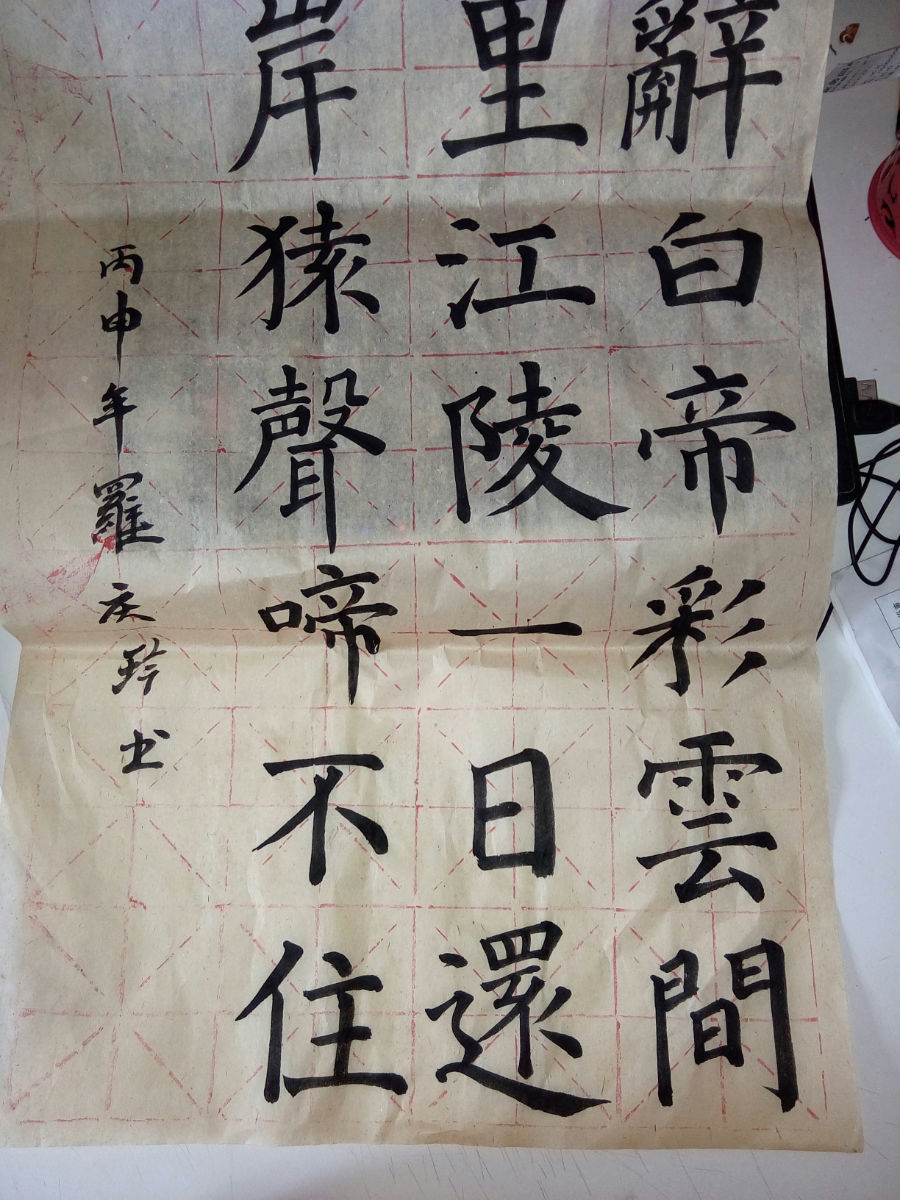 辭白帝彩雲間
里江陵一日還
岸猿聲啼不住
丙申年羅庆玲书